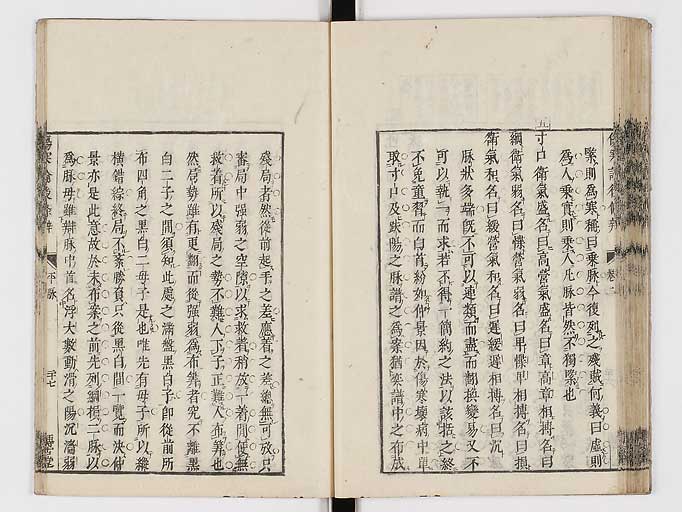 緊則爲寒稱曰乘脉今復列之殘賊何義曰虛則
爲人乘實則乘人凡脉皆然不獨緊也
寸口衛氣盛名曰高營氣盛名曰章高章相搏名曰
綱衛氣弱名曰惵營氣弱名曰卑惵卑相搏名曰損
衛氣和名曰緩營氣和名曰遲緩遲相搏名曰沉
脉狀多端既不可以連類而盡而翻換變易又不
可以執一而求若不得一簡約之法以該括之終
不免童習而白首紛如仲景因於傷寒壞病中單
取寸口及趺陽之脉譜之爲案猶奕譜中之布成
殘局者然從前起手之差應着之差總無可放只
審局中强弱之空隙以求救着稍放一着間便無
救着所以殘局之勢不難人下子正難人布算也
然局勢雖有更翻而後强弱爲布算者究不離黑
白二子之間須知此處之滿盤黑白子卽從前所
布四角之黑白二母子是也唯先有母子所以縱
橫錯綜終局不紊勝負只從黑白間一覽而決仲
景亦是此意故於未布案之前先列綱損二脉以
爲脉母雖辯脉中首名浮大數動滑之陽沉濇弱
平脉